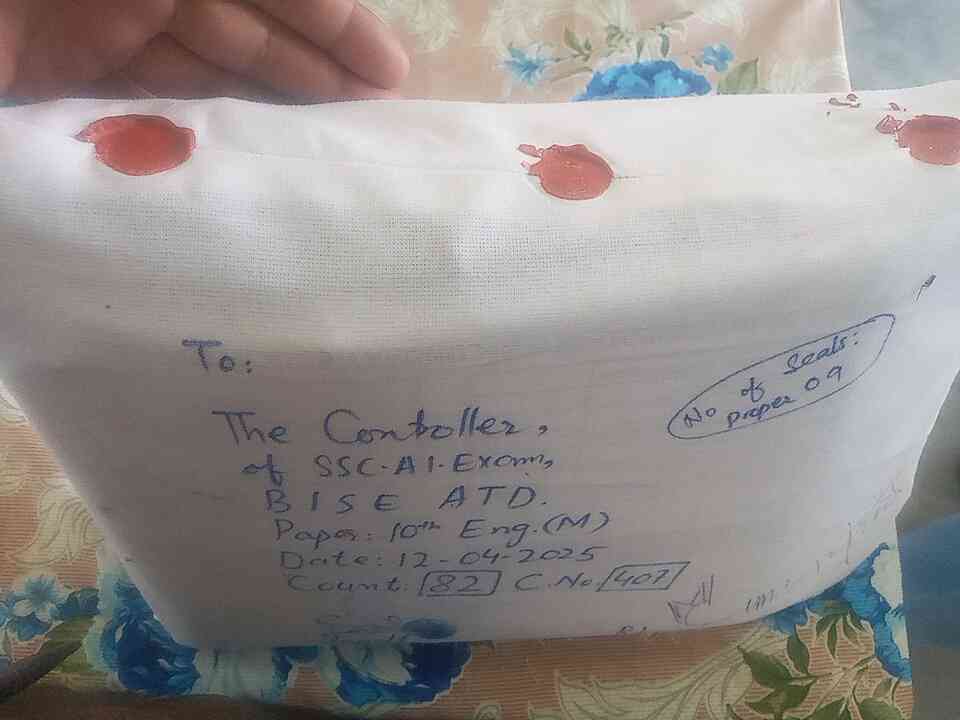 To:
The Controller,
of SSC.A1.Exam,
BISE ATD.
Paper: 10th Eng.(M)
Date: 12-04-2025
Count: 82 C.No. 407
No of Seals:
proper 09